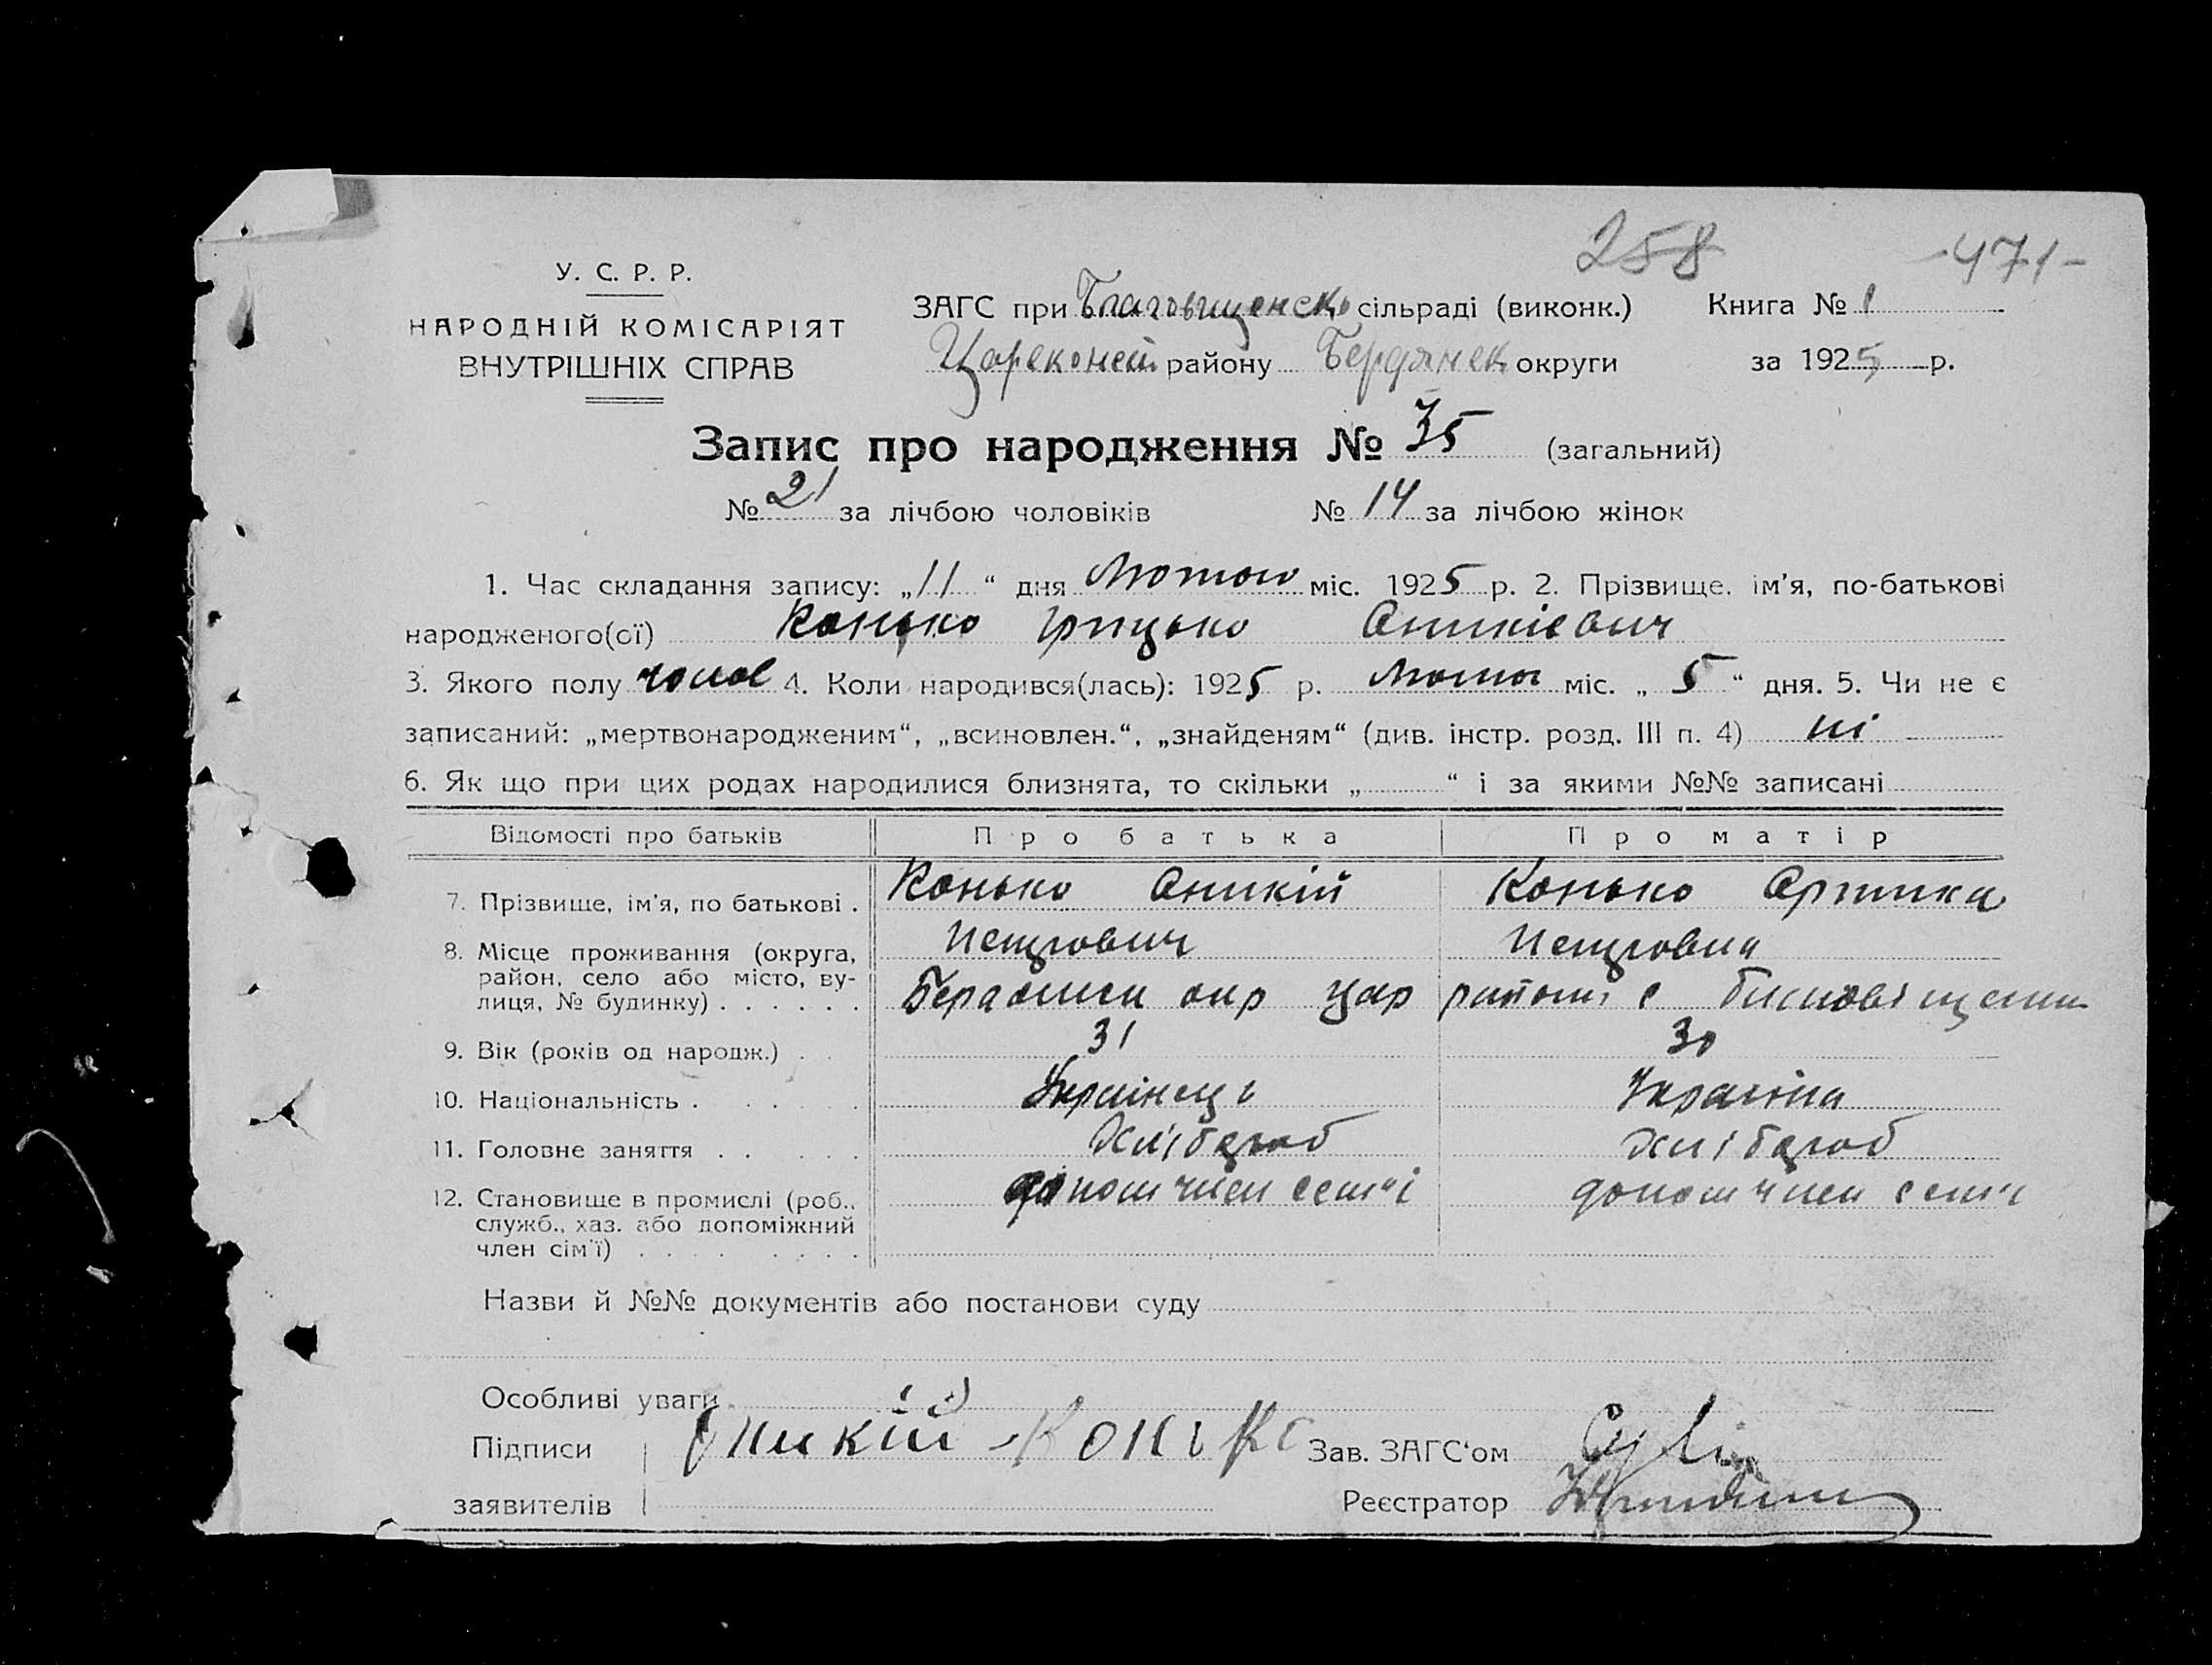 258 -471-
У. С. Р. Р.
НАРОДНІЙ КОМІСАРІЯТ
ВНУТРІШНІХ СПРАВ
ЗАГС при Благовіщенско сільраді (виконк.) Книга № 1
району Бердянск округи за 1925 р.
Запис про народження № 35 (загальний)
№ 21 за лічбою чоловіків № 14 за лічбою жінок
1. Час складання запису: „11“ дня Лютого міс. 1925 р. 2. Прізвище, ім'я, по-батькові
народженого(ої) Конько Грицько Оникієвич
3. Якого полу чолов 4. Коли народився(лась): 1925 р. Лютого міс. „5“ дня. 5. Чи не є
записаний: „мертвонародженим“, „всиновлен.“, „знайденям“ (див. інстр. розд. III п. 4) ні
6. Як що при цих родах народилися близнята, то скільки „ “ і за якими №№ записані
Відомості про батьків Про батька Про матір
7. Прізвище, ім'я, по батькові . Конько Оникій Конько
Петрович Петровна
8. Місце проживання (округа,
район, село або місто, ву-
лиця, № будинку) . . . . . . окр Цар района с
9. Вік (років од народж.) . . 31 30
10. Національність . . . . . Українець Україна
11. Головне заняття . . . . . Хлібороб Хлібороб
12. Становище в промислі (роб.,
служб., хаз. або допоміжний
член сім'ї) . . . . . . . . допом член семі допом член семі
Назви й №№ документів або постанови суду
Особливі уваги
Підписи Оникій Конько Зав. ЗАГС'ом
заявителів Реєстратор